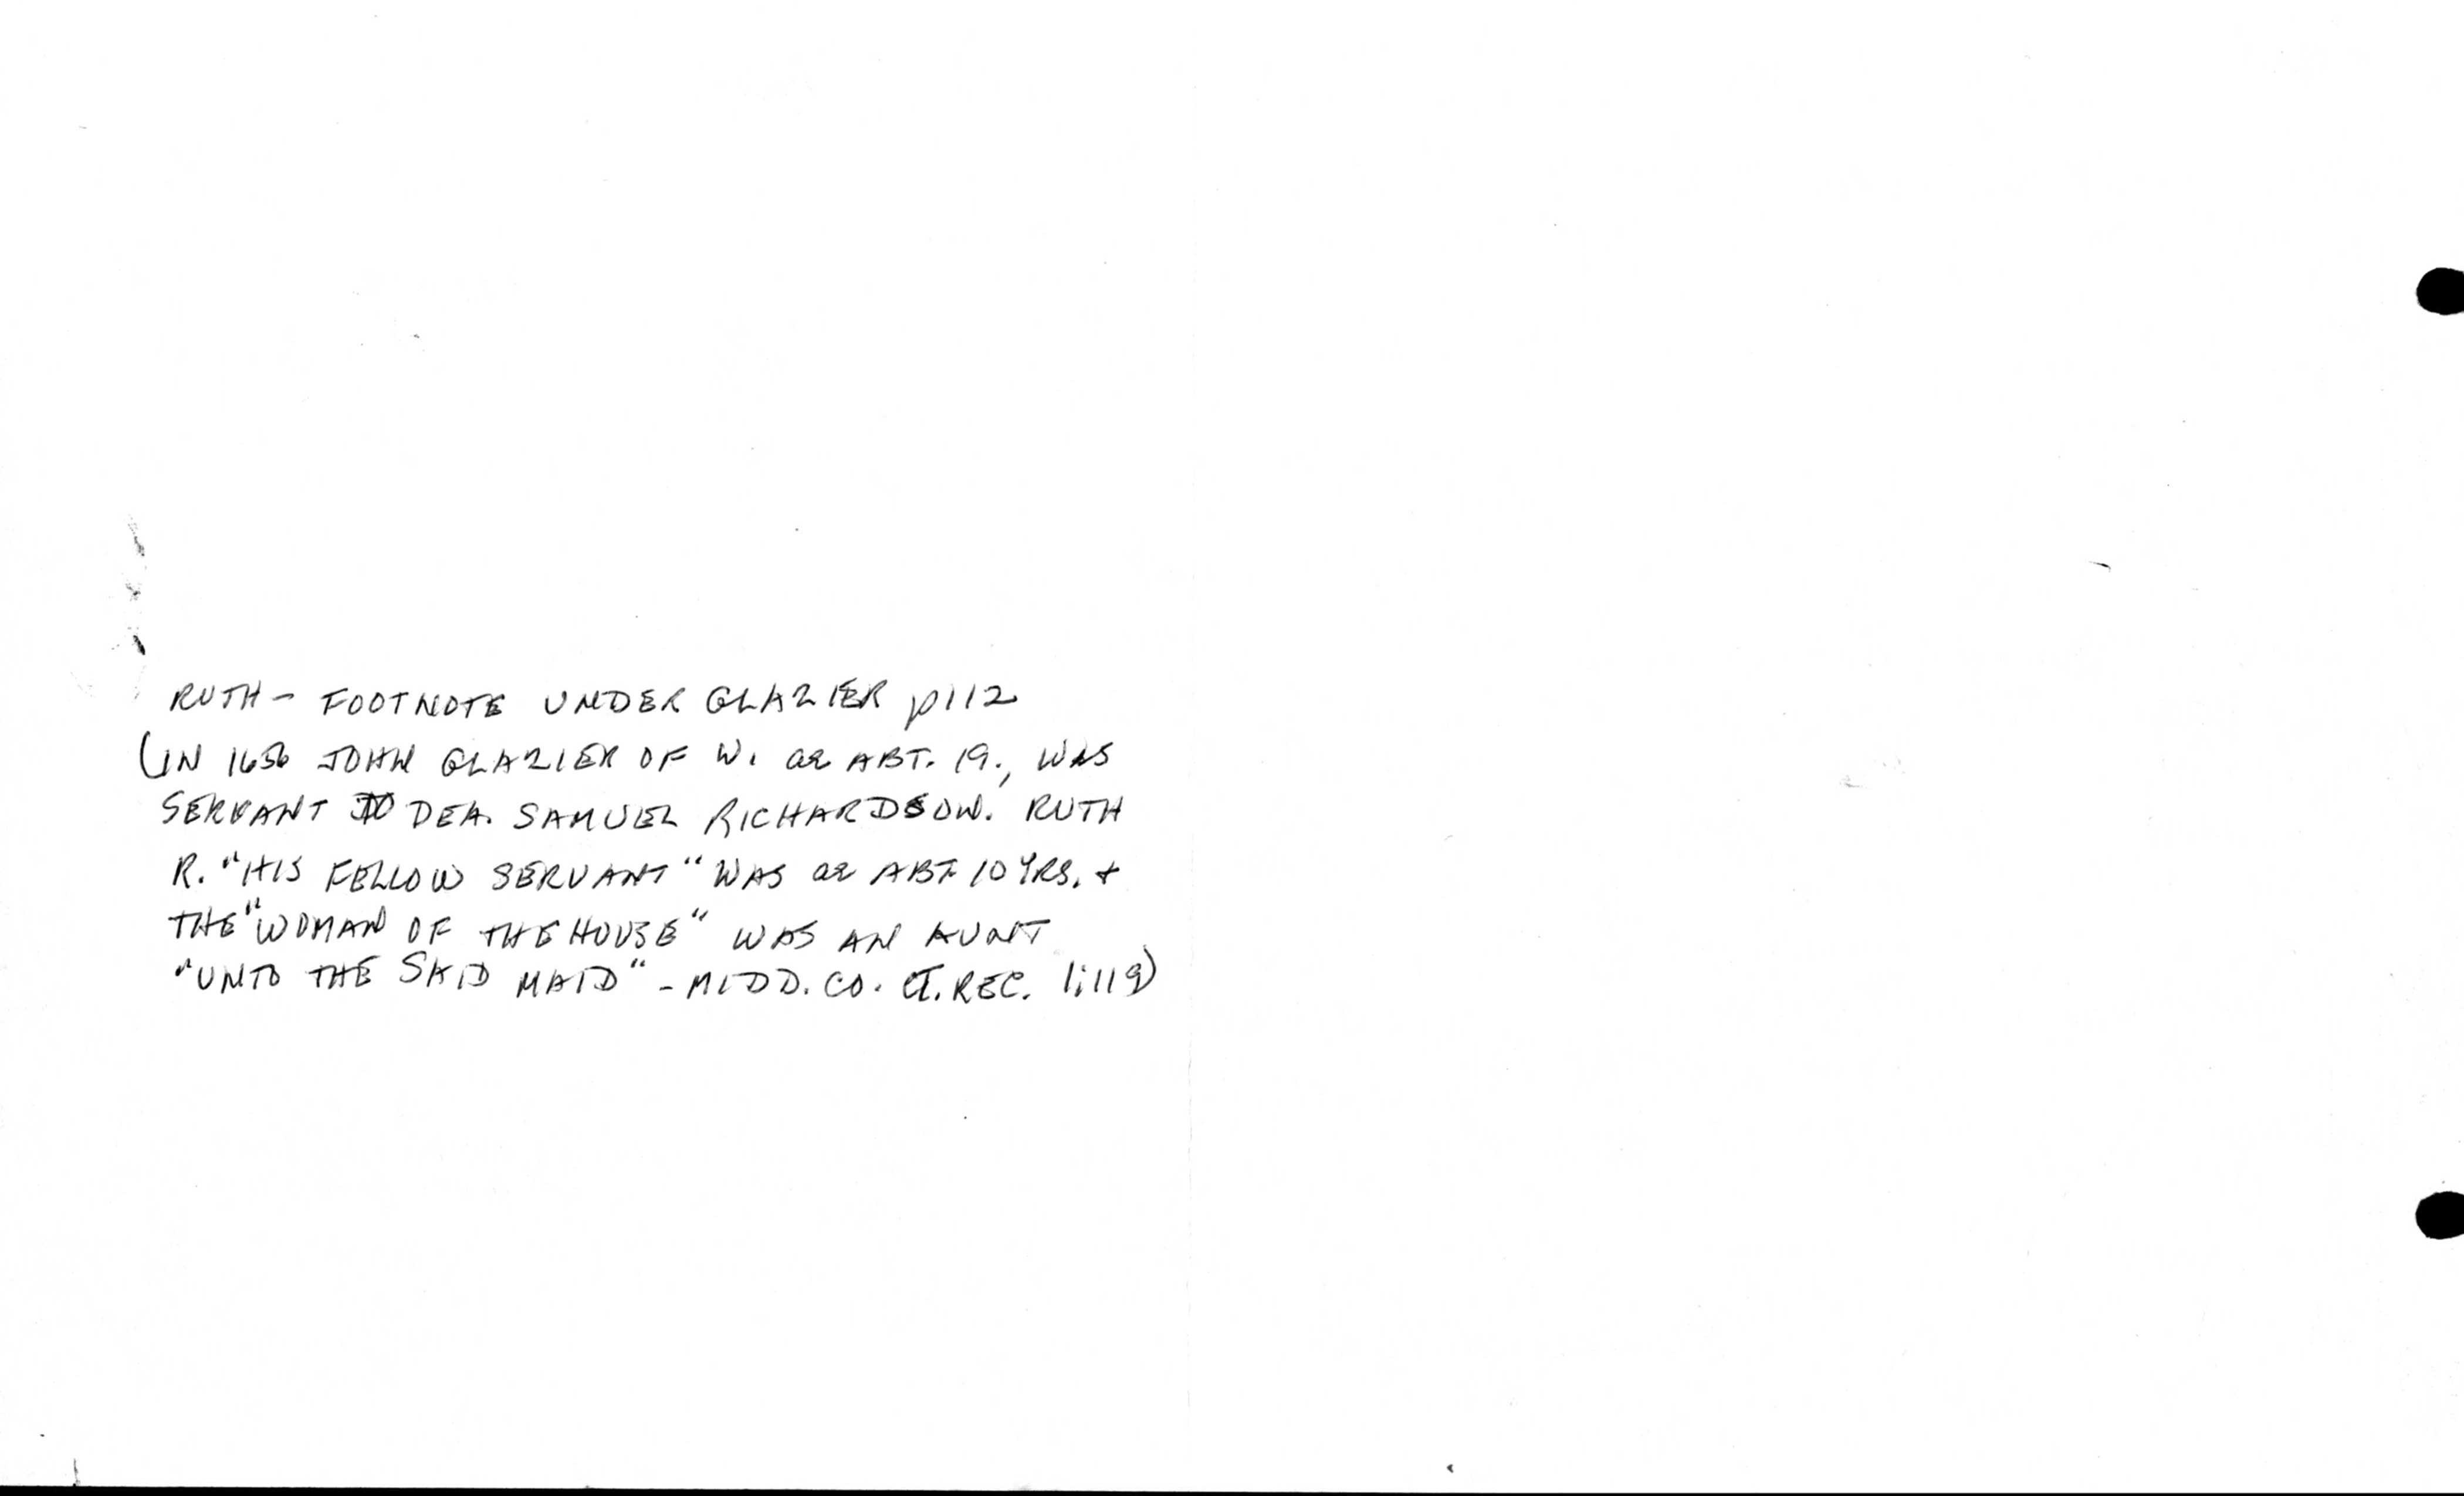 RUTH - FOOTNOTE UNDER GLAZIER p112
(IN 1656 JOHN GLAZIER OF W. ae ABT. 19., WAS
SERVANT TO DEA. SAMUEL RICHARDSON. RUTH
R. "HIS FELLOW SERVANT" WAS ae ABT 10 YRS. +
THE "WOMAN OF THE HOUSE" WAS AN AUNT
"UNTO THE SAID MAID" - MIDD. CO. CT. REC. 1:119)